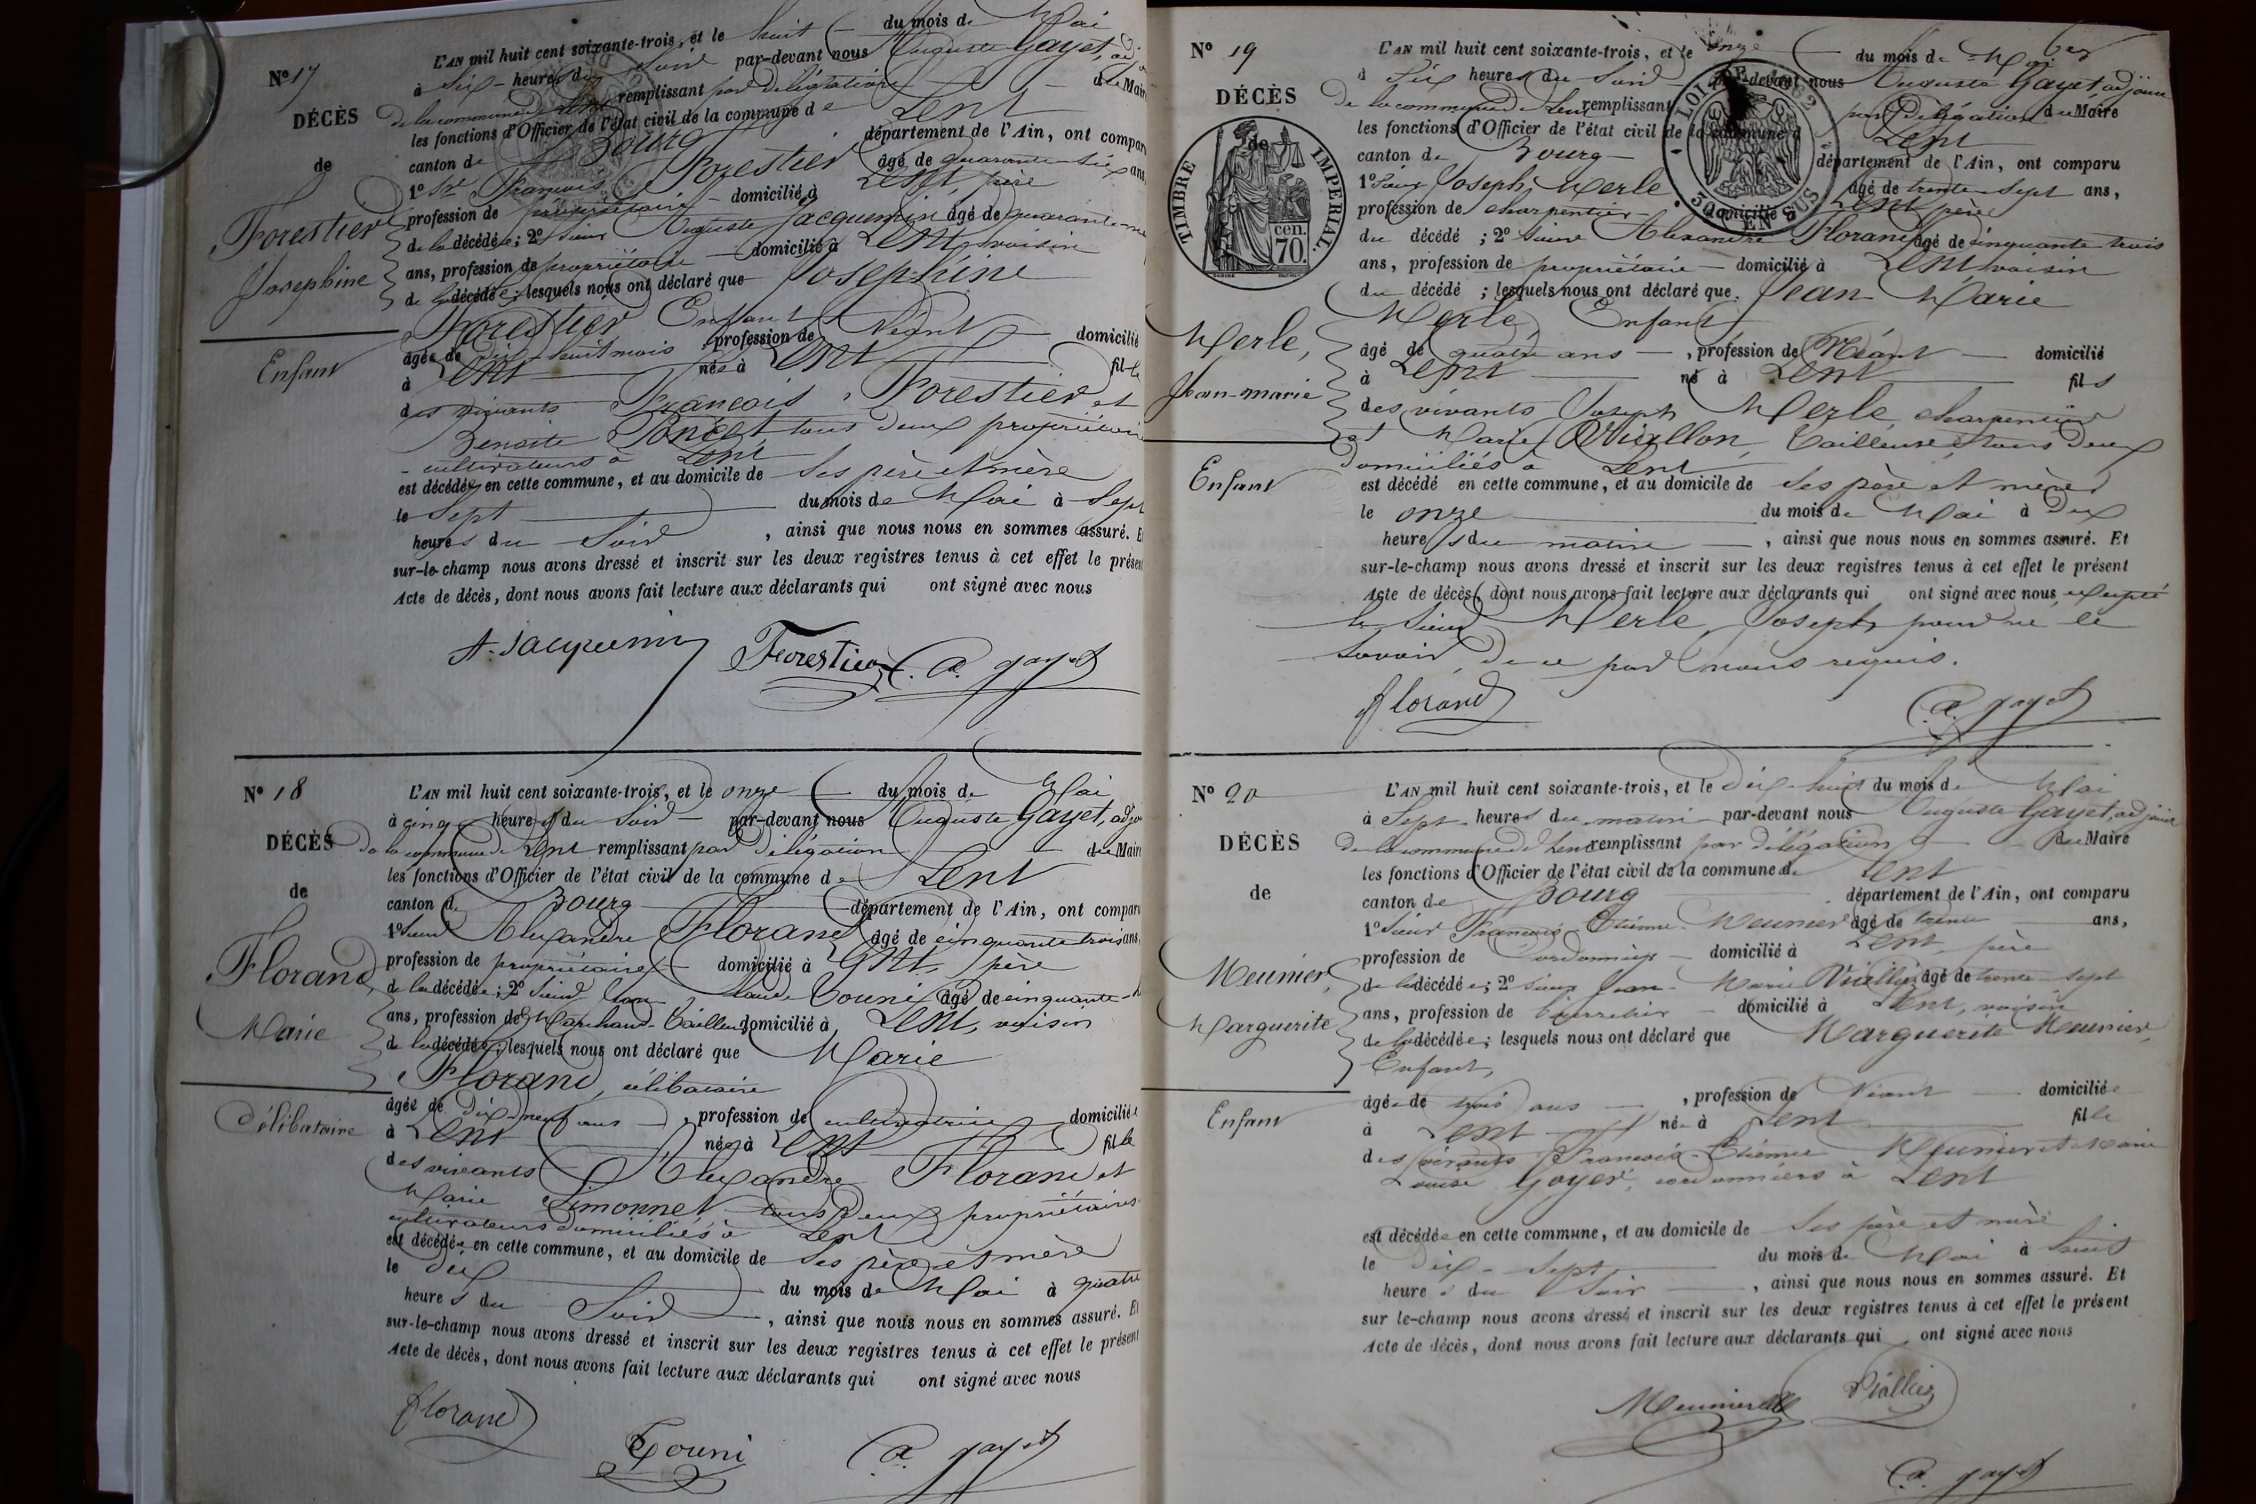 N° 17
DÉCÈS
de
Forestier
Josephine
Enfant
L'AN mil huit cent soixante-trois, et le huit du mois de Mai
à Six heures du Soir par-devant nous Auguste Gayet, adjo
de la commune de Lent remplissant par délégation de Maire
les fonctions d'Officier de l'état civil de la commune de Lent
canton de Bourg département de l'Ain, ont compar
1° Sr François Forestier âgé de quarante-six ans,
profession de propriétaire domicilié à Lent, père
de la décédée; 2° Sieur Auguste Jacquemin âgé de quarante
ans, profession de propriétaire domicilié à Lent, voisin
de la décédée; lesquels nous ont déclaré que Josephine
Forestier Enfant
âgée de dix-huit mois, profession de Néant domicilié
à Lent née à Lent fille
des vivants François Forestier et
Benoite Poncet, tous deux propriétaires
cultivateurs à Lent
est décédée en cette commune, et au domicile de Ses père et mère
le Sept du mois de Mai à Sept
heures du Soir, ainsi que nous nous en sommes assuré. E
sur-le-champ nous avons dressé et inscrit sur les deux registres tenus à cet effet le présen
Acte de décès, dont nous avons fait lecture aux déclarants qui ont signé avec nous
A. Jacquemin Forestier A. gayet
N° 18
DÉCÈS
de
Florand,
Marie
Célibataire
L'AN mil huit cent soixante-trois, et le onze du mois de Mai
à cinq heures du Soir par-devant nous Auguste Gayet, adjo
de la commune de Lent remplissant par délégation de Maire
les fonctions d'Officier de l'état civil de la commune de Lent
canton de Bourg département de l'Ain, ont compar
1° Sieur Alexandre Florand âgé de cinquante trois ans,
profession de propriétaire domicilié à Lent, père
de la décédée; 2° Sieur Claude Touni âgé de cinquante
ans, profession de Marchand-Tailleur domicilié à Lent, voisin
de la décédée; lesquels nous ont déclaré que Marie
Florand, célibataire
âgée de dix-neuf ans, profession de cultivatrice domiciliée
à Lent née à Lent fille
des vivants Alexandre Florand et
Marie Simonnet tous deux propriétaires
cultivateurs domiciliés à Lent
est décédée en cette commune, et au domicile de Ses père et mère
le dix du mois de Mai à quatre
heures du Soir, ainsi que nous nous en sommes assuré. Et
sur-le-champ nous avons dressé et inscrit sur les deux registres tenus à cet effet le présent
Acte de décès, dont nous avons fait lecture aux déclarants qui ont signé avec nous
florand
Touni A. gayet
N° 19
DÉCÈS
de
TIMBRE IMPERIAL.
70 cen.
LOI DE 1862
30 EN SUS
Merle,
Jean-marie
Enfant
L'AN mil huit cent soixante-trois, et le onze du mois de Mai
à Six heures du Soir par-devant nous Auguste Gayet, adjoint
de la commune de Lent remplissant par Délégation de Maire
les fonctions d'Officier de l'état civil de la commune d Lent
canton de Bourg département de l'Ain, ont comparu
1° Sieur Joseph Merle âgé de trente-Sept ans,
profession de charpentier domicilié à Lent père
du décédé; 2° Sieur Alexandre Florand âgé de cinquante trois
ans, profession de propriétaire domicilié à Lent voisin
du décédé; lesquels nous ont déclaré que Jean Marie
Merle, Enfant
âgé de quatre ans, profession de Néant domicilié
à Lent né à Lent fils
des vivants Joseph Merle charpentier
et Marie Viallon, Tailleuse, tous deux
domiciliés à Lent
est décédé en cette commune, et au domicile de Ses père et mère
le onze du mois de Mai à dix
heures du matin, ainsi que nous nous en sommes assuré. Et
sur-le-champ nous avons dressé et inscrit sur les deux registres tenus à cet effet le présent
Acte de décès, dont nous avons fait lecture aux déclarants qui ont signé avec nous excepté
le Sieur Merle, Joseph, pour ne le
savoir, de ce par nous requis.
florand A. gayet
N° 20
DÉCÈS
de
Meunier,
Marguerite
Enfant
L'AN mil huit cent soixante-trois, et le dix-huit du mois de Mai
à Sept heures du matin par-devant nous Auguste Gayet, adjoint
de la commune de Lent remplissant par délégation de Maire
les fonctions d'Officier de l'état civil de la commune de Lent
canton de Bourg département de l'Ain, ont comparu
1° Sieur François-Etienne Meunier âgé de trente ans,
profession de Cordonnier domicilié à Lent, père
de la décédée; 2° Sieur Jean-Marie Viallier âgé de trente-sept
ans, profession de domicilié à Lent, voisin
de la décédée; lesquels nous ont déclaré que Marguerite Meunier,
Enfant,
âgée de trois ans, profession de Néant domiciliée
à Lent née à Lent fille
des vivants François-Etienne Meunier et Marie
Louise Goyer, cordonniers à Lent
est décédée en cette commune, et au domicile de Ses père et mère
le dix-Sept du mois de Mai à huit
heures du Soir, ainsi que nous nous en sommes assuré. Et
sur le-champ nous avons dressé et inscrit sur les deux registres tenus à cet effet le présent
Acte de décès, dont nous avons fait lecture aux déclarants qui ont signé avec nous
Meunier Viallier
A. gayet